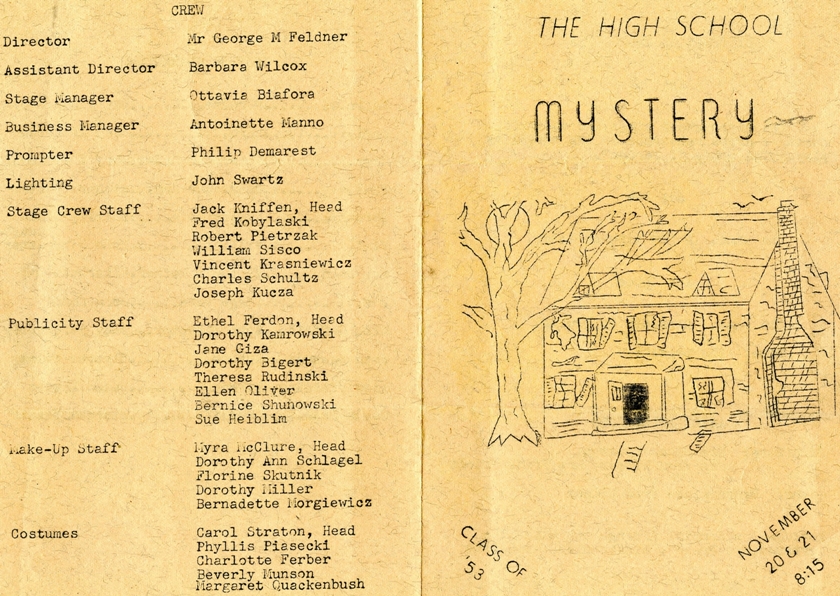 CREW
Director Mr George M Feldner
Assistant Director Barbara Wilcox
Stage Manager Ottavia Biafora
Business Manager Antoinette Manno
Prompter Philip Demarest
Lighting John Swartz
Stage Crew Staff Jack Kniffen, Head
Fred Kobylaski
Robert Pietrzak
William Sisco
Vincent Krasniewicz
Charles Schultz
Joseph Kucza
Publicity Staff Ethel Ferdon, Head
Dorothy Kamrowski
Jane Giza
Dorothy Bigert
Theresa Rudinski
Ellen Oliver
Bernice Shunowski
Sue Heiblim
Make-Up Staff Myra McClure, Head
Dorothy Ann Schlagel
Florine Skutnik
Dorothy Miller
Bernadette Morgiewicz
Costumes Carol Straton, Head
Phyllis Piasecki
Charlotte Ferber
Beverly Munson
Margaret Quackenbush
THE HIGH SCHOOL
MYSTERY
CLASS OF
'53
NOVEMBER
20 & 21
8:15